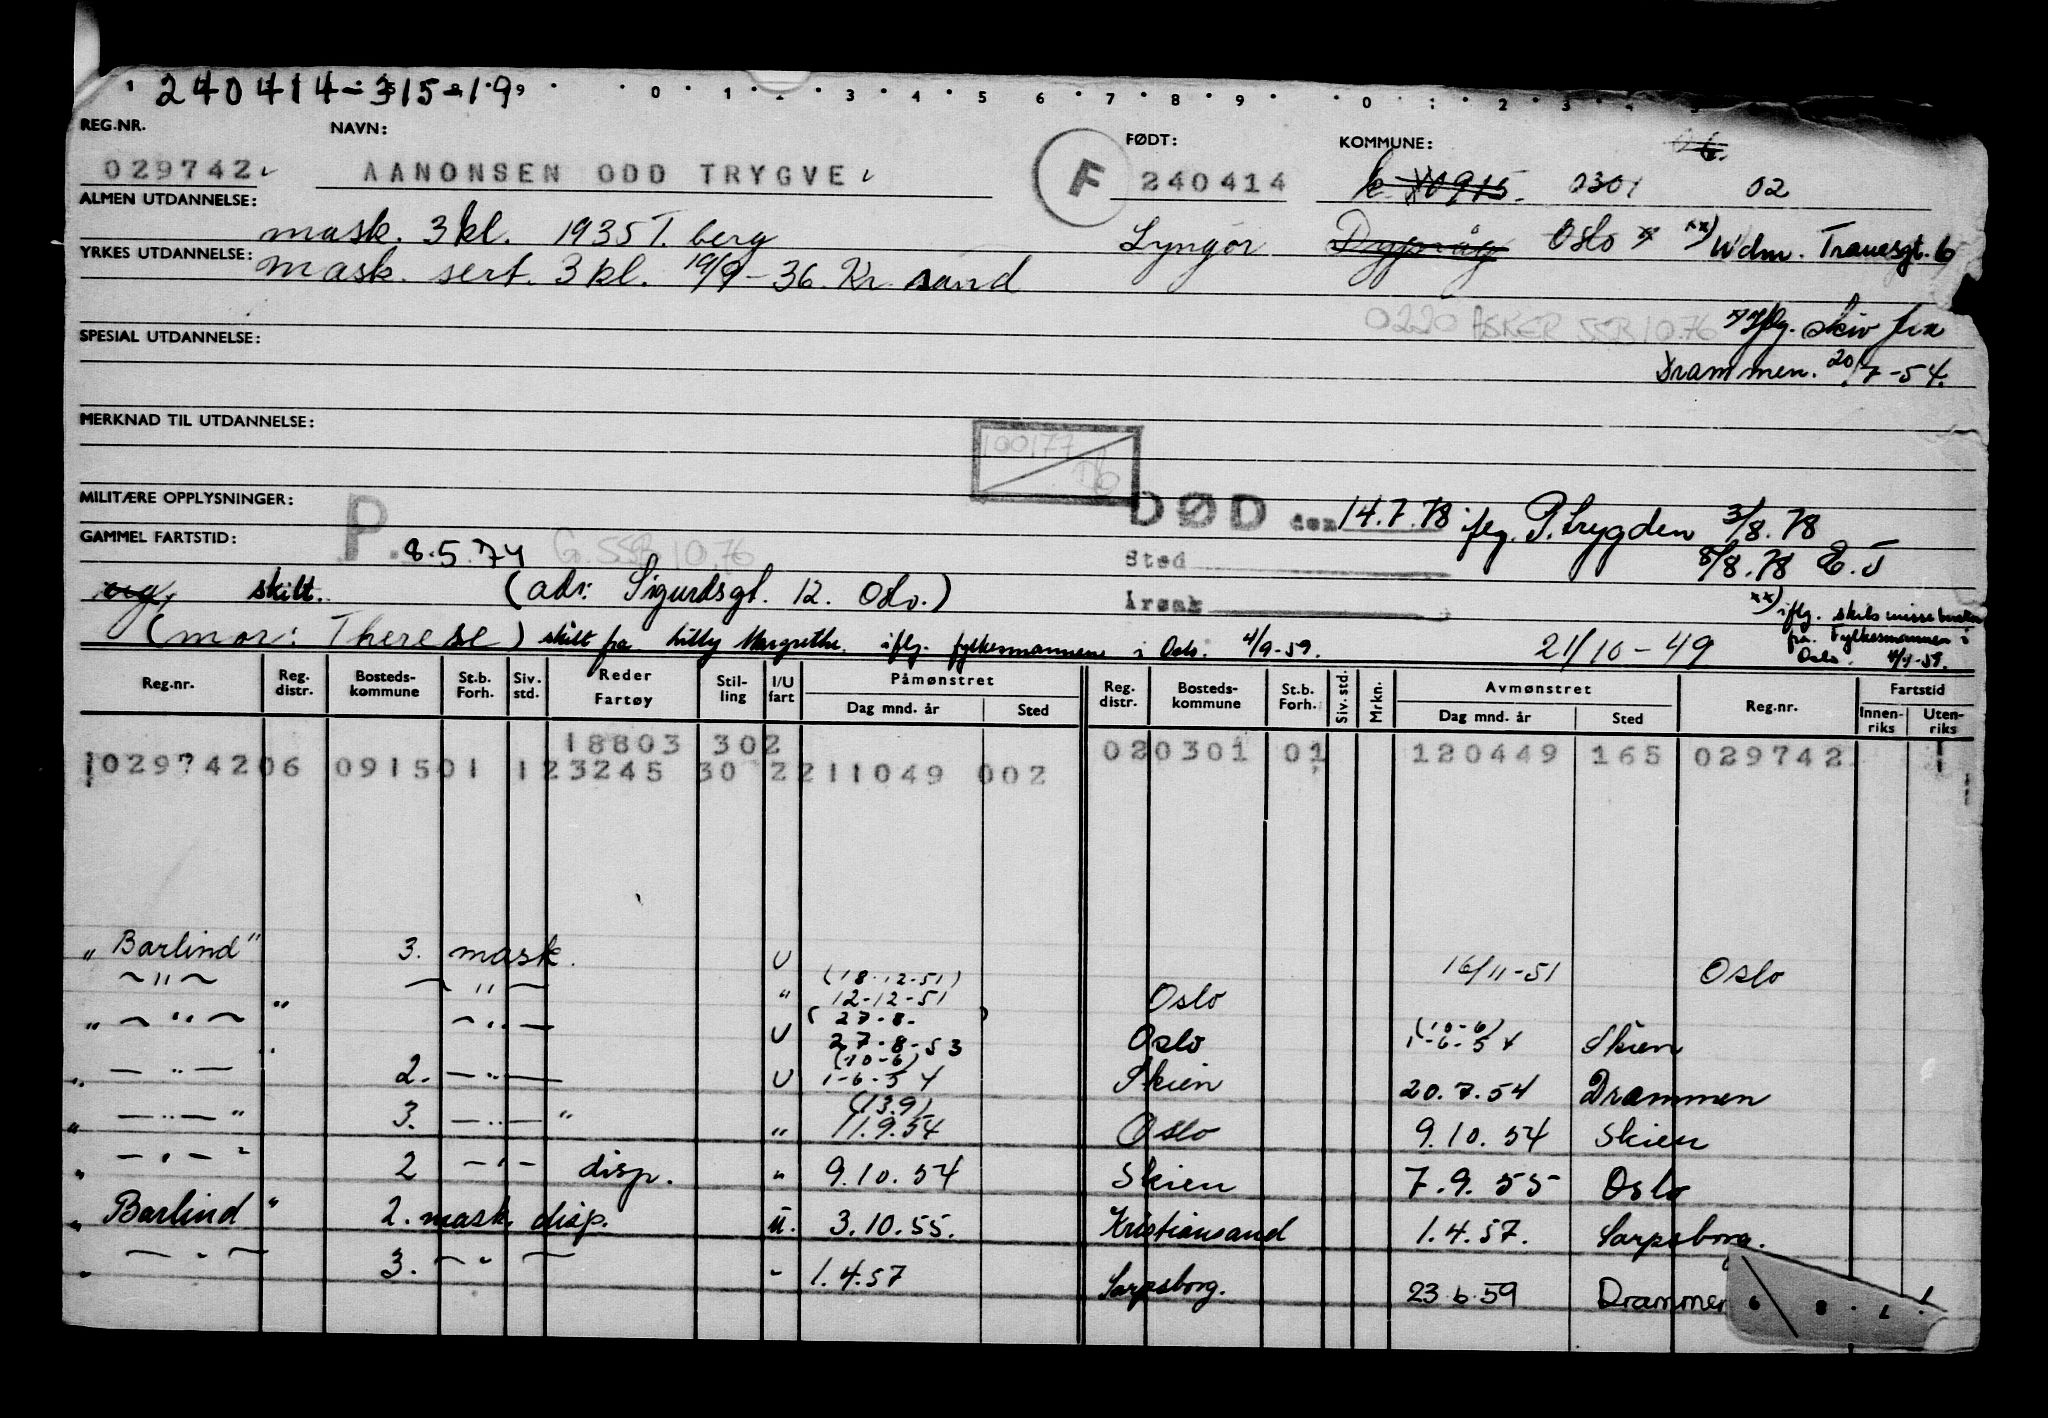 240414-315-19
0 1 3 4 5 6 7 8 9 0 2 3
REG.NR. NAVN: FØDT: KOMMUNE:
029742 AANONSEN ODD TRYGVE F 240414 0915. 0301 02
ALMEN UTDANNELSE: mask. 3 kl. 1935 T. berg Lyngør Dypvåg Oslo x xx) Wdm. Tranesgt. 6
YRKES UTDANNELSE: mask. sert. 3 kl. 19/9-36. Kr. sand
0220 ASKER SSB 10.76 x) Iflg. skiv fra
SPESIAL UTDANNELSE: Drammen. 20/7-54.
MERKNAD TIL UTDANNELSE:
100177
MILITÆRE OPPLYSNINGER: P. DØD den 14.7.78 iflg. P. trygden 3/8.78
GAMMEL FARTSTID: 8.5.74 G. SSB 10.76 Sted 8/8.78 E.J
ug, skilt. (adr: Sigurdsgt. 12. Oslo.) Årsak xx) iflg. skilsmisse
(mor: Therese) skilt fra Lilly Margrethe. iflg. fylkesmannen i Oslo. 4/9-59. 21/10-49 fra Fylkesmannen i Oslo. 4/9-59.
Reg.nr. Reg. distr. Bosteds-kommune St.b. Forh. Siv. std. Reder Fartøy Stil-ling I/U fart Påmønstret Dag mnd. år Sted Reg. distr. Bosteds-kommune St.b. Forh. Siv. std. Mrkn. Avmønstret Dag mnd. år Sted Reg.nr. Fartstid Innen-riks Uten-riks
18803 302 020301 01 120449 165 029742
029742 06 0915 01 1 23245 30 2 211049 002
"Barlind" 3. mask. U 16/11-51 Oslo
— " — — " — " (18.12.51) 12-12-51 Oslo
" — " — " — " — U (27.8. ) 27.8-53 Oslo (10-6) 1-6-54 Skien
" — " — " 2. — " — U (10-6) 1-6-54 Skien 20.7.54 Drammen
" — " — " 3. — " — " " (13.9) 11.9.54 Oslo 9.10.54 Skien
" — " — " 2 — " — disp. " 9.10.54 Skien 7.9.55 Oslo
"Barlind" 2. mask. disp. u. 3.10.55. Kristiansand 1.4.57. Sarpsborg.
" — " — 3. — " — " 1.4.57 Sarpsborg. 23.6.59 Drammen
6 8 . 1